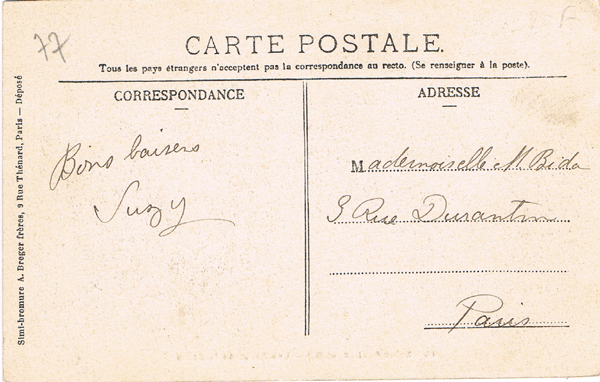 77
CARTE POSTALE.
Tous les pays étrangers n'acceptent pas la correspondance au recto. (Se renseigner à la poste).
CORRESPONDANCE
Bons baisers
Suzy
ADRESSE
Mademoiselle M. Bida
Rue Durantin
Paris
Simi-bromure A. Breger frères, 9 Rue Thénard, Paris — Déposé